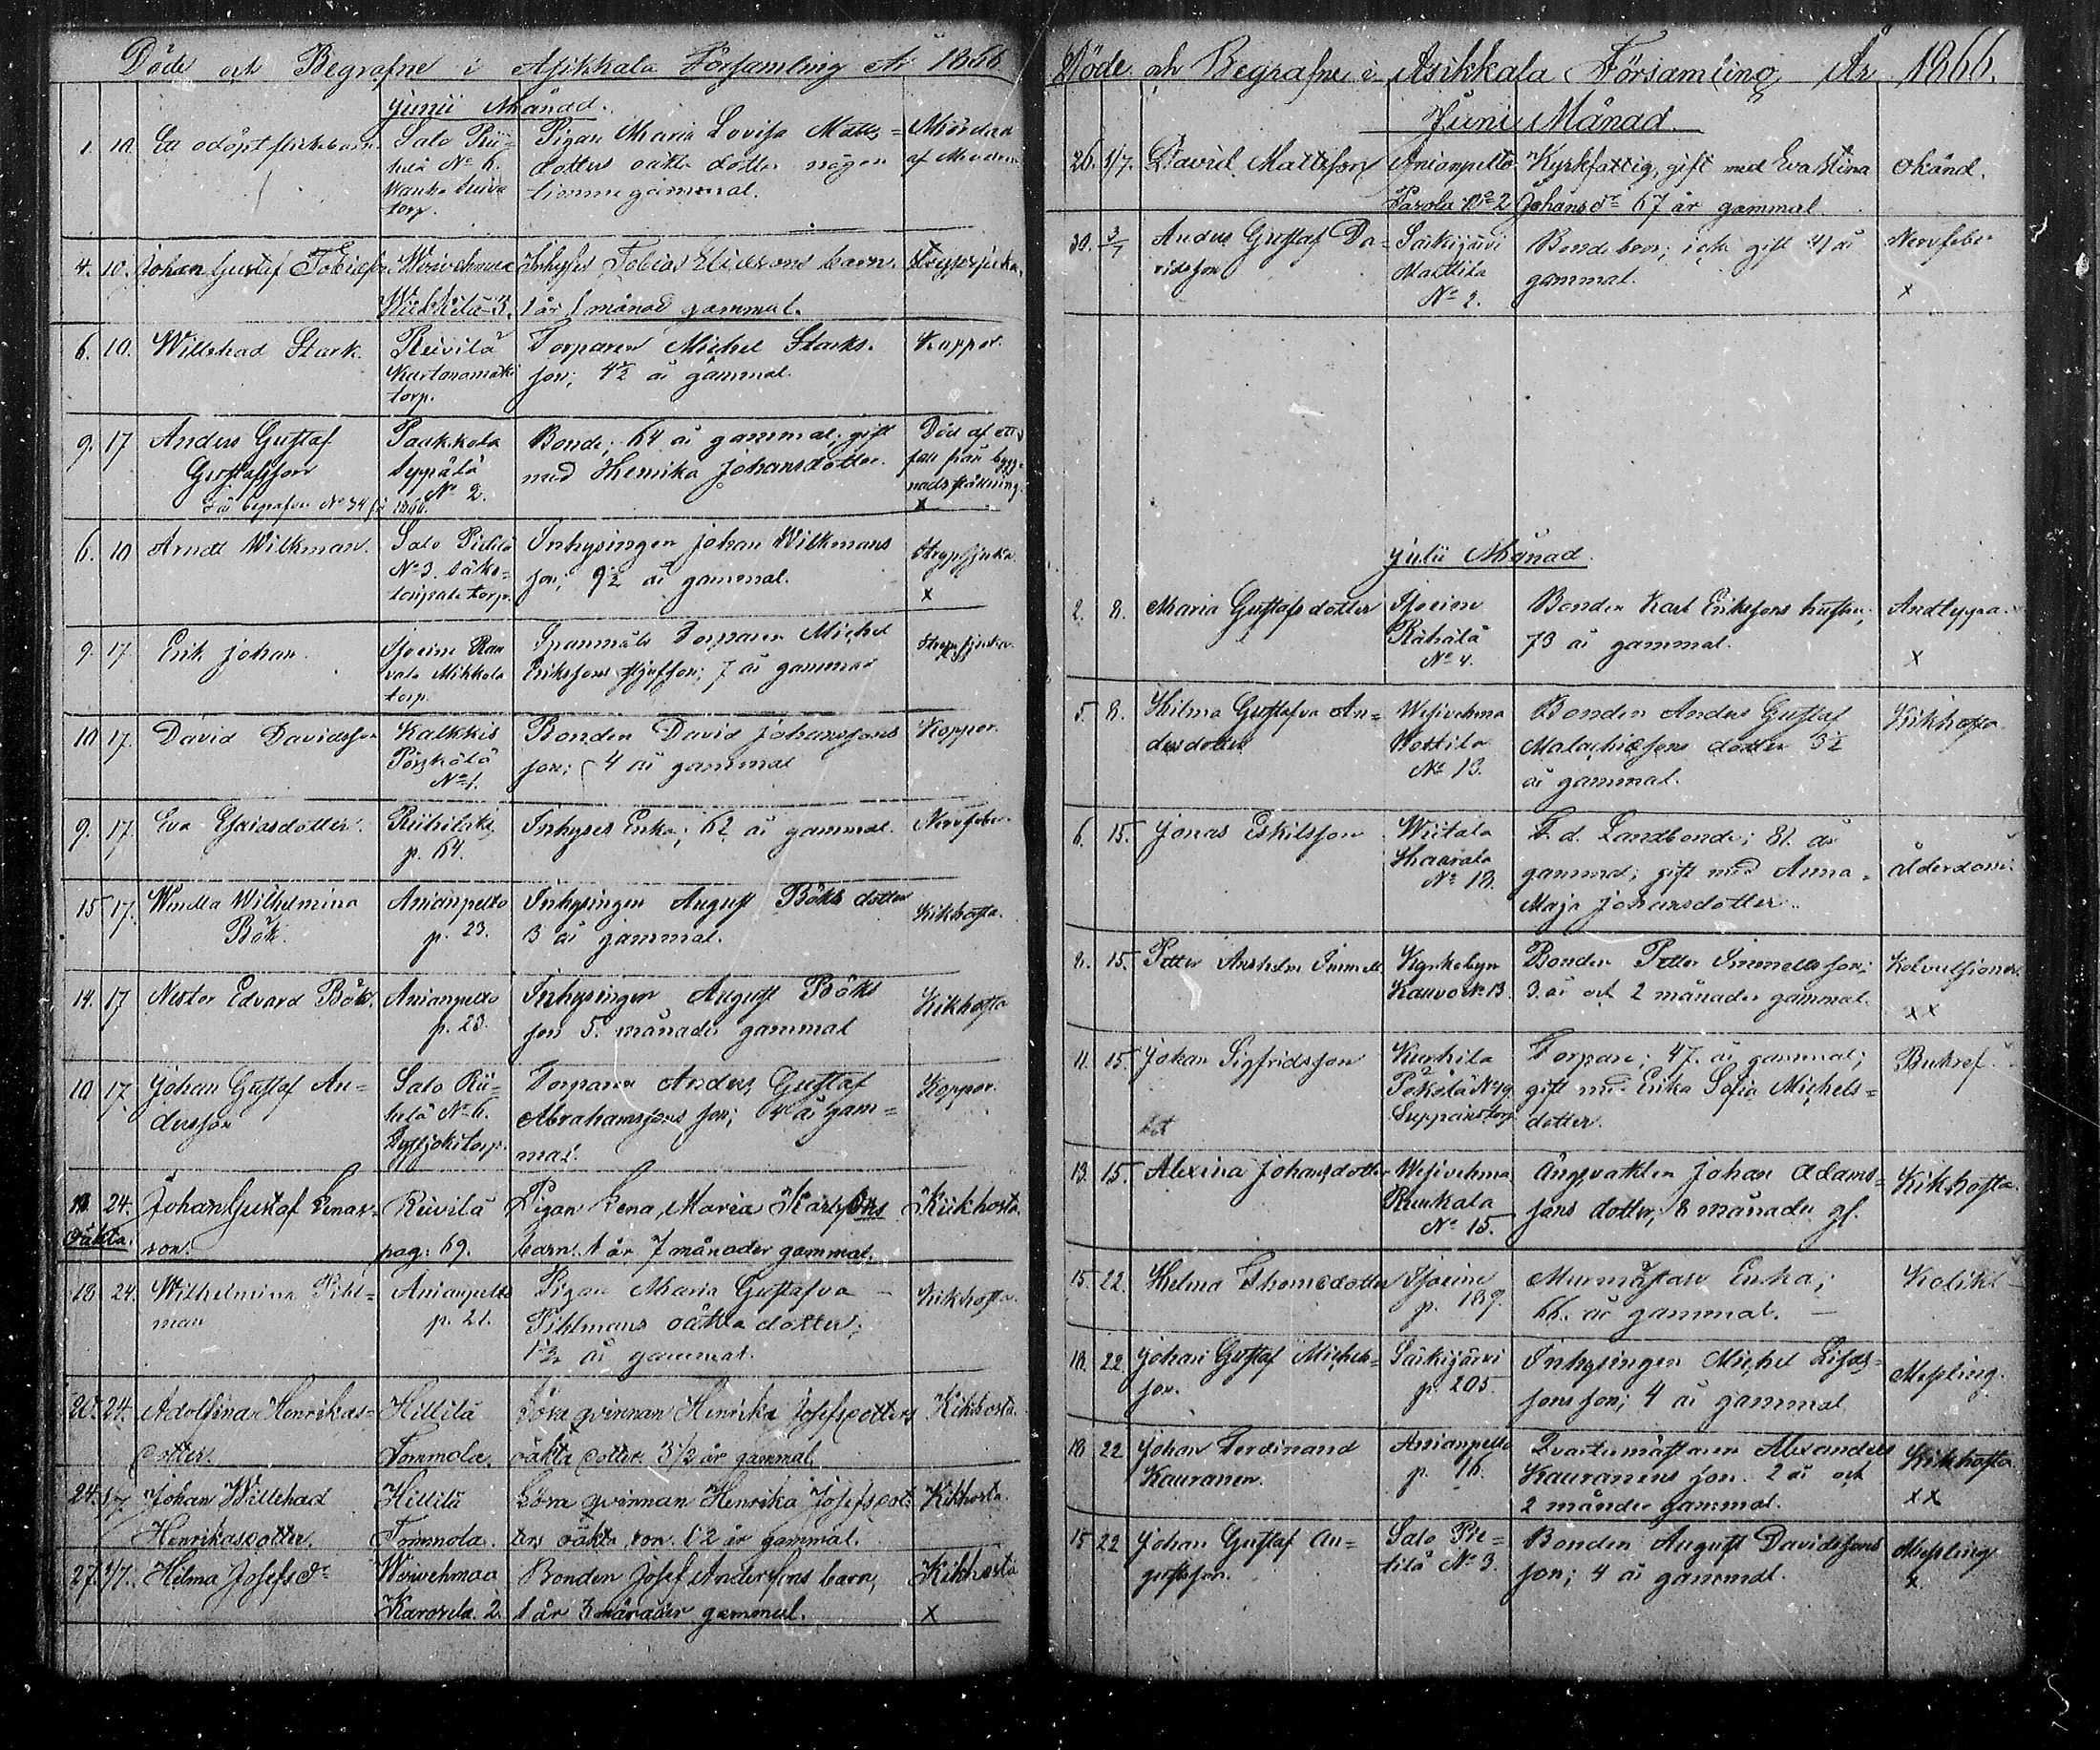 Döde och Begrafne i Asikkala Församling År 1866
Junii Månad.
1. 10. Ett odöpt flickebarn. Salo Rii= Pigan Maria Lovisa Matts= Mördad
helä No 6. dotters oäkta dotter någon af Modren
torp. timme gammal.
4. 10. Johan Gustaf Tobiasson Wesivehmaa Inhyses Tobias Eliæsons barn. Strypsjuka.
3. 1 år 1 månad gammal.
6. 10. Willehad Stark. Reivilä Torparen Michel Starks Koppor.
torp. son; 4 1/2 år gammal.
9. 17 Anders Gustaf Paakkola Bonde; 64 år gammal; gift Död af ett
Gustafsson Seppälä med Henrika Johansdotter. fall från bygg=
No 2. nadsställning.
1866. x
6. 10 Arndt Wilkman. Salo Pietilä Inhysingen Johan Wilkmans Strypsjuka.
No 3. torp. son; 9 1/2 år gammal. x
9. 17. Erik Johan. Torparen Michel Strypsjuka
Mikkola Erikssons son; 7 år gammal
torp.
10 17. David Davidsson Kalkkis Bonden David Johanssons Koppor.
Pörskälä son; 4 år gammal
No 1.
9. 17. Eva Esaiasdotter. Riihilaks Inhyses Enka; 62 år gammal. Nervfeber.
p. 64.
15 17. Wilhelmina Anianpelto Inhysingen August Böks dotter Kikhosta.
Bök. p. 23. 3 år gammal.
14. 17 Nestor Edvard Bök. Anianpelto Inhysingen August Böks Kikhosta
p. 23. son 5. månader gammal
10 17. Johan Gustaf An= Salo Rii= Torparen Anders Gustaf Koppor.
dersson helä No 6. Abrahamssons son; 4 år gam=
torp. mal.
18. 24. Johan Gustaf Lenas= Reivilä Pigan Lena Maria Karlssons Kikhosta.
oäkta. son. pag: 69. barn. 1 år 7 månader gammal.
18 24. Wilhelmina Pihl= Anianpelto Pigan Maria Gustafva Kikhosta.
man p. 21. Pihlmans oäkta dotter;
1 1/2 år gammal.
20. 24. Adolfina Henrikas= Hillilä Lösa qvinnan Henrika Josefsdotters Kikhosta.
dotter. Tommola. oäkta dotter 3 1/2 år gammal
24. 1/7 Johan Willehad Hillilä Lösa qvinnan Henrika Josefsdot= Kikhosta.
Henrikasdotter. Tommola. ters oäkta son. 1/2 år gammal.
27. 1/7. Hilma Josefsdr Wesivehmaa Bonden Josef Anderssons barn, Kikhosta
2. 1 år 3 månader gammal. x
Döde och Begrafne i Asikkala Församling År 1866.
Juni Månad.
26. 1/7. David Mattsson Anianpelto Kyrkfattig, gift med Eva Stina Okänd.
Parola No 2 Johansdr 67 år gammal
30. 3/7 Anders Gustaf Da= Särkijärvi Bondeson; icke gift 41 år Nervfeber
vidsson Mattila gammal. x
No 2.
Julii Månad.
2. 8. Maria Gustafsdotter Bonden Karl Erikssons hustru; Andtäppa.
Rähälä 73 år gammal. x
No 4.
5. 8. Hilma Gustafva An= Wesivehma Bonden Anders Gustaf Kikhosta
dersdotter Wottila Malachiæsons dotter 3 1/2
No 13. år gammal.
6. 15. Jonas Eskilsson Wiitala F. d. Landbonde; 81. år
Skaarala gammal; gift med Anna ålderdom.
No 18. Maja Johansdotter.
8. 15. Petter Anshelm Immell Kyrkobyn Bonden Petter Immells son; Kolvulsioner.
No 13. 3 år och 2 månader gammal. x x
11. 15. Johan Sigfridsson Kurhila Torpare; 47. år gammal; Bukref.
No 19. gift med Erika Sofia Michels=
torp dotter.
13. 15. Alexina Johansdotter Wesivehma Ängvaktten Johan Adams= Kikhosta.
No 15. sons dotter; 8 månader gl.
15. 22. Helena Thomædotter Murmästare Enka; Kolik
p. 189. 66. år gammal.
18. 22 Johan Gustaf Michels= Särkijärvi Inhysingen Michel Mässling.
son. p. 205. sons son; 4 år gammal
18 22 Johan Ferdinand Anianpelto Qvartermästaren Alexander Kikhosta
Kauranen. p. 16. Kauranens son. 2 år och x x
2 månder gammal.
15 22 Johan Gustaf Au= Salo Pie= Bonden August Davidssons Mässling
gustsson. tilä No 3. son; 4 år gammal. x.